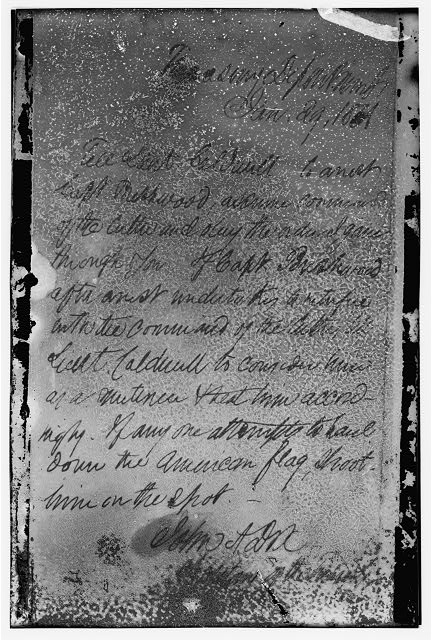 Treasury Department
Jan. 29, 1861
Tell Lieut Caldwell to arrest
Capt Breshwood assume command
of the Cutter and obey the order I gave
through you If Capt Breshwood
after arrest undertakes to interfere
with the command of the Cutter tell
Lieut. Caldwell to consider him
as a mutineer & treat him accord-
ingly. If any one attempts to haul
down the American flag, shoot
him on the spot -
John A Dix
Secretary of the Treasury